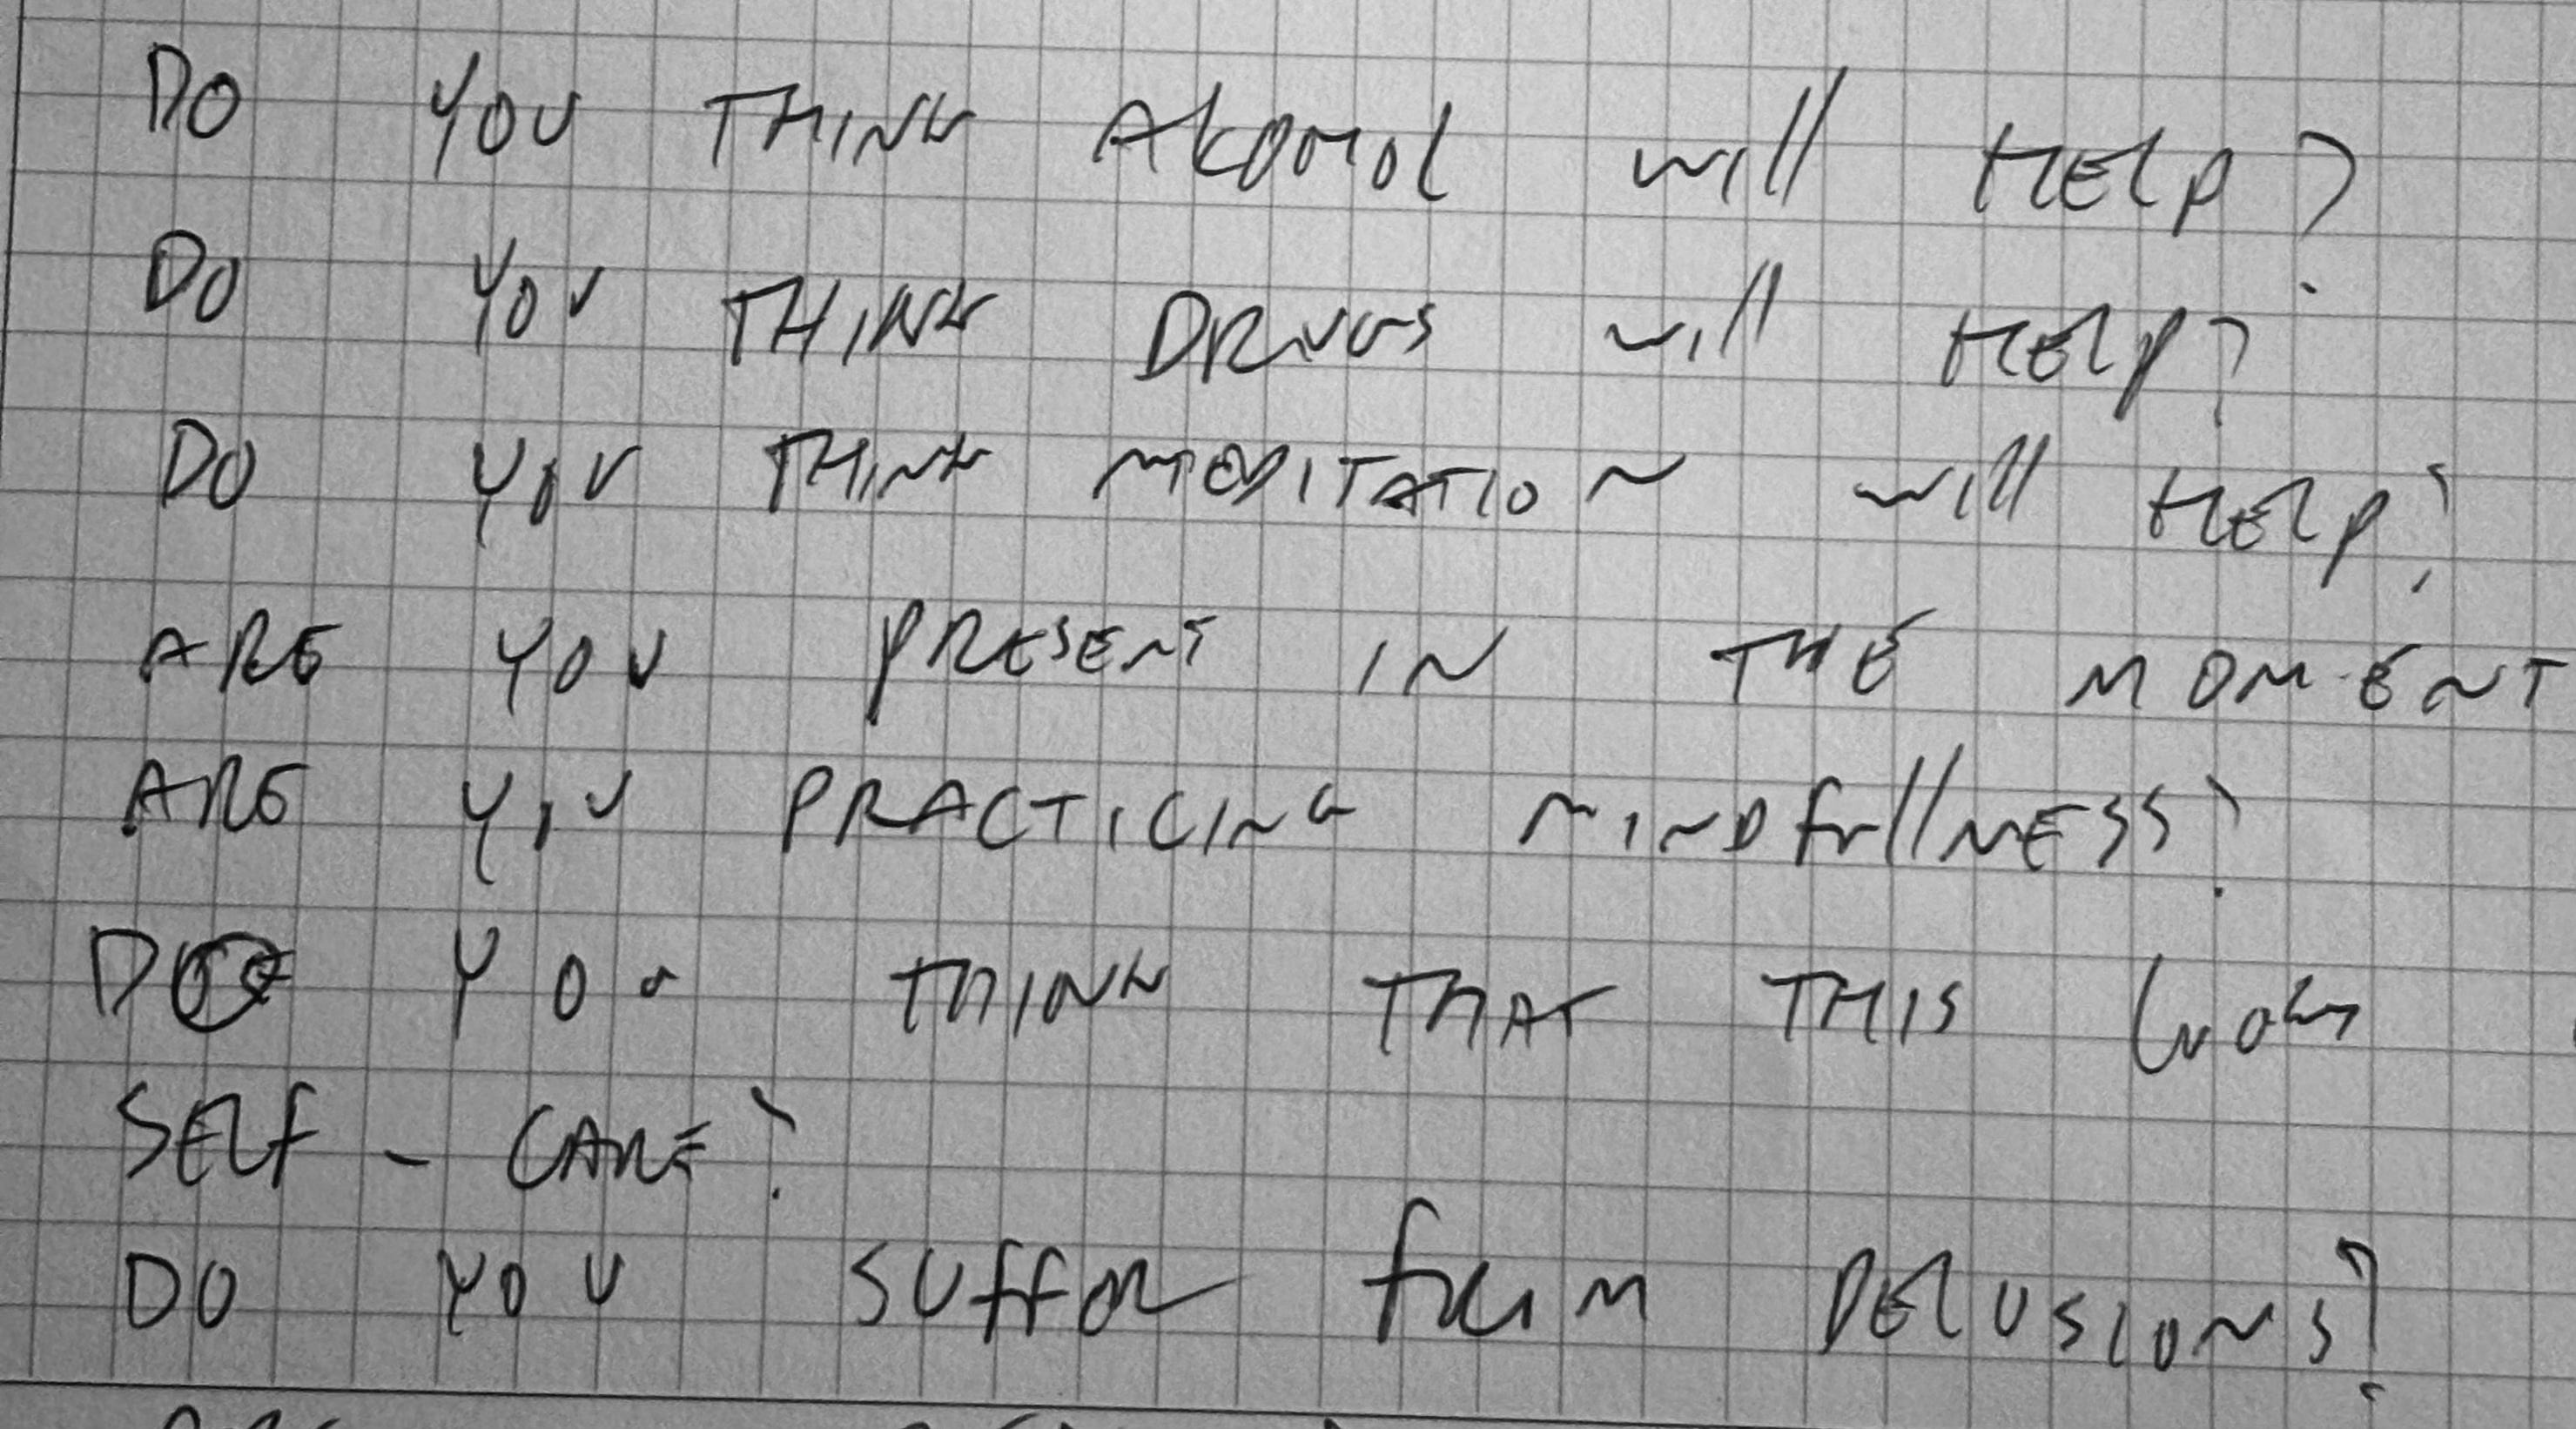 DO YOU THINK AlKOHOL will HELP?
DO YOU THINK DRUGS will HELP?
DO YOU THINK MEDITATION will HELP?
ARE YOU PRESENT IN THE MOMENT
ARE YOU PRACTICING MINDfUllNESS?
DO YOU THINK THAT THIS
SElf - CARE?
DO YOU SUffER fROM DElUSIONS?